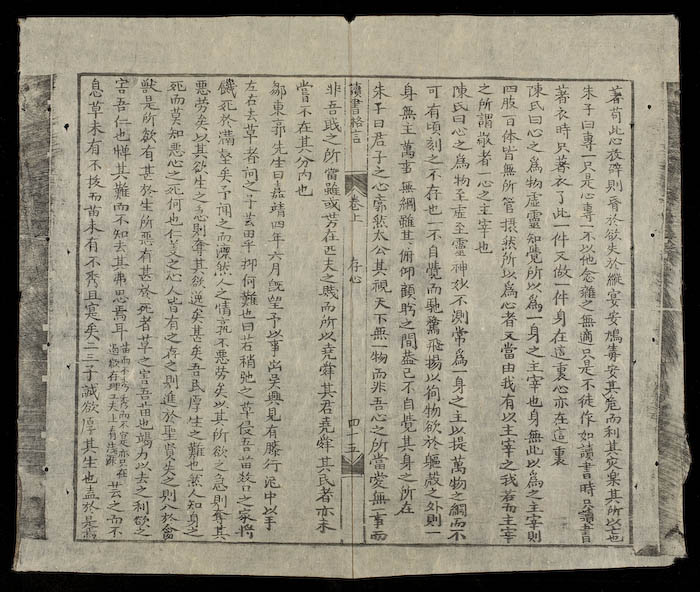 著苟此心放肆則䘮於欲失於縱宴安鴆毒安其危而利其灾樂其所以亡
朱子曰專一只是心專一不以他念雜之無適只是不徒作如讀書時只讀書
著衣時只著衣了此一件又做一件身在這裏心亦在這裏
陳氏曰心之爲物虛靈知覺所以爲一身之主宰也身無此以爲之主宰則
四肢百体皆無所管攝然所以爲心者又當由我有以主宰之我若而主宰
之所謂敬者心之主宰也
陳氏曰心之爲物至虛至靈神妙不測常爲一身之主以提萬物之綱而不
可有頃刻之不存也一不自覺而馳騖飛揚以徇物欲於軀殼之外則一
身無主萬事無綱雖其俯仰顧眄之間蓋已不自覺其身之所在
朱子曰君子之心廓然太公其視天下無一物而非吾心之所當愛無一事而
讀書格言 卷上 存心 四十五
非吾或之所當雖或勞在匹夫之賤而所以堯舜其君堯舜其民者亦未
嘗不在其分內也
鄒東廓先生曰嘉靖四年六月旣望予以事出吳興見有藤行泥中以手
左右去草者詞之予去田平抑何難也曰若稍弛之草侵吾苗故吾之家將
饑死於溝壑矣予聞之而凜然人之情孰不惡勞矣以其所欲之急則奪其
惡勞矣以其欲生之急則奪其欲逸矣甚矣吾民厚生之難也然人知身之
死而莫知惡心之死何也仁義之心人皆有之存之則進於聖賢失之則入於禽
獸是所欲有甚於生所惡有甚於死者草之害吾苗也竭力以去之利欲之
害吾仁也憚其難而不知去其弗思焉耳 芸之而不
息草未有不拔而苗未有不秀且實矣二三子誠欲厚其生也盍於是